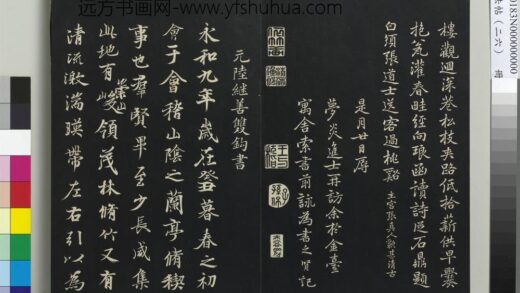 远方书画网-www.yfshuhua.com
樓觀迴深巷松枝夾路低拾薪供早爨
抱瓮灌春畦經向琅函讀詩從石鼎題
白須張道士送客過桃谿
是月廿日
夢炎進士再訪余於金臺
寓舍索書前詠為書之
元陸繼善雙鈎書
永和九年歲在癸丑暮春之初
會于會稽山陰之蘭亭脩稧
事也羣賢畢至少長咸集
此地有崇山峻領茂林脩竹又有
清流激湍暎帶左右引以為
0183N000000000
(二六)